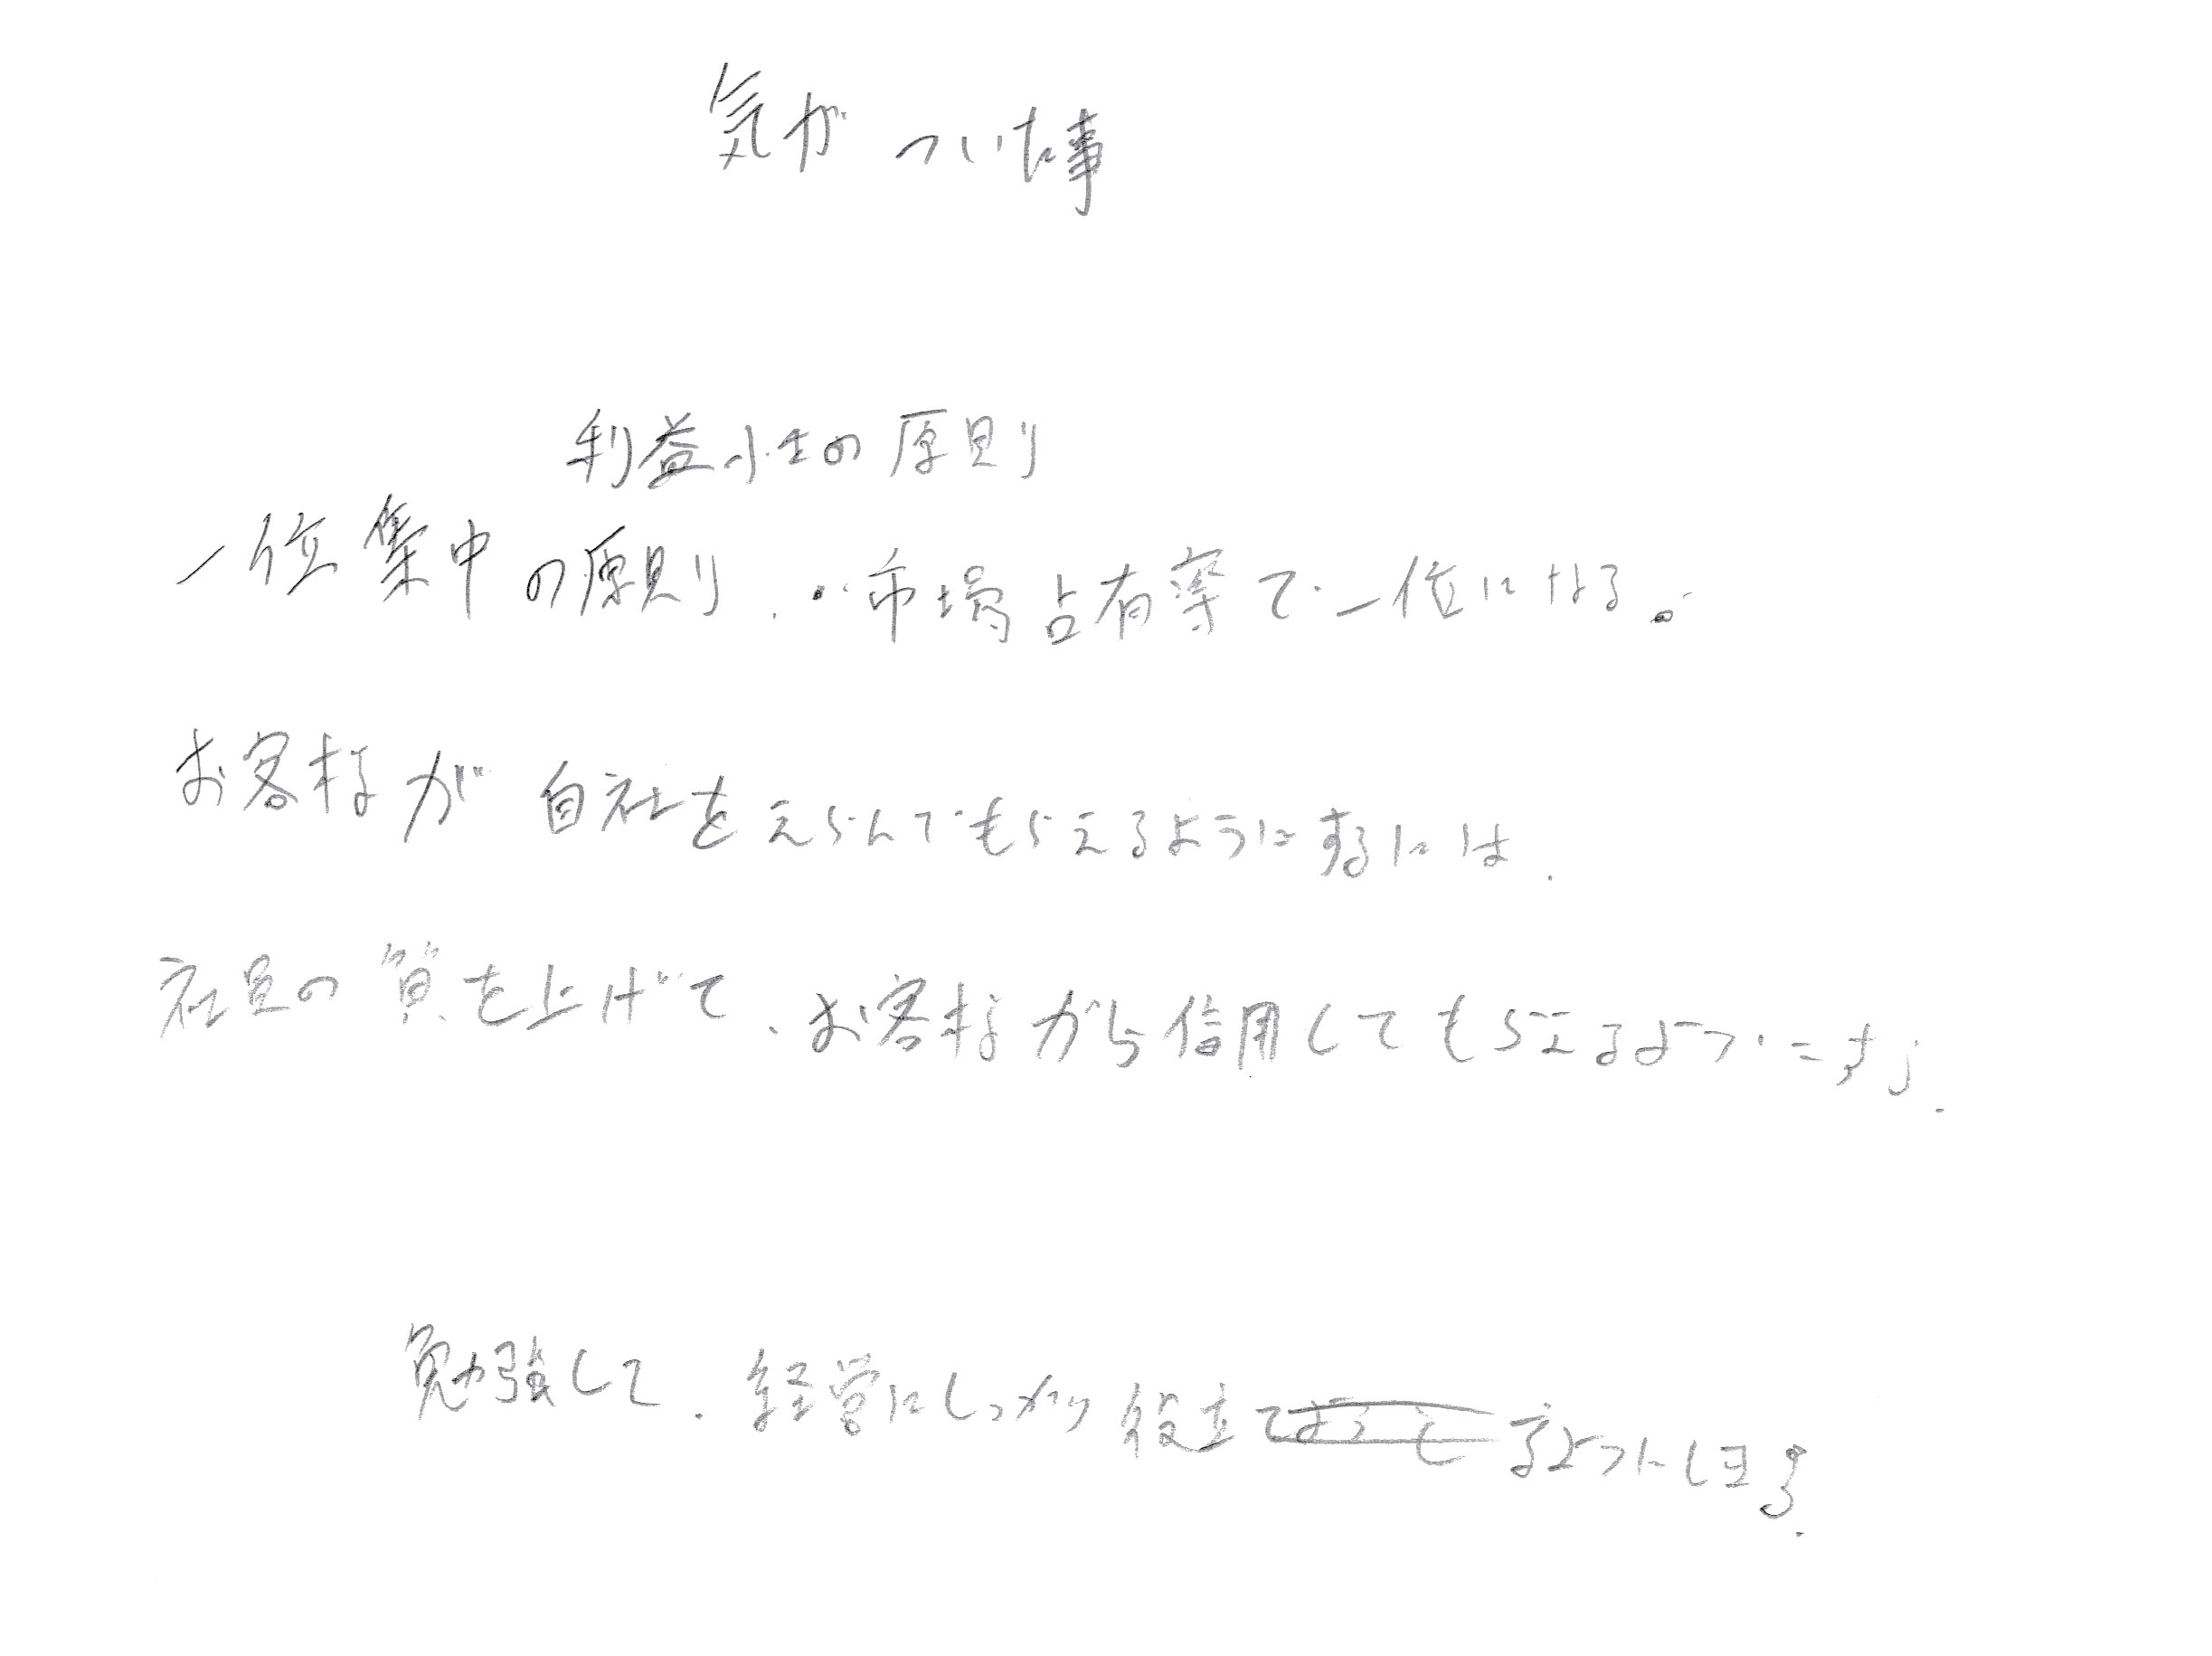 気がついた事
利益小士の原則
一位集中の原則、・・市場占有率で一位になる。
お客様が自社をえらんでもらえるようにするには、
社員の質を上げて、お客様から信用してもらえるようにする、
勉強して、経営にしっかり役立てるようにします、